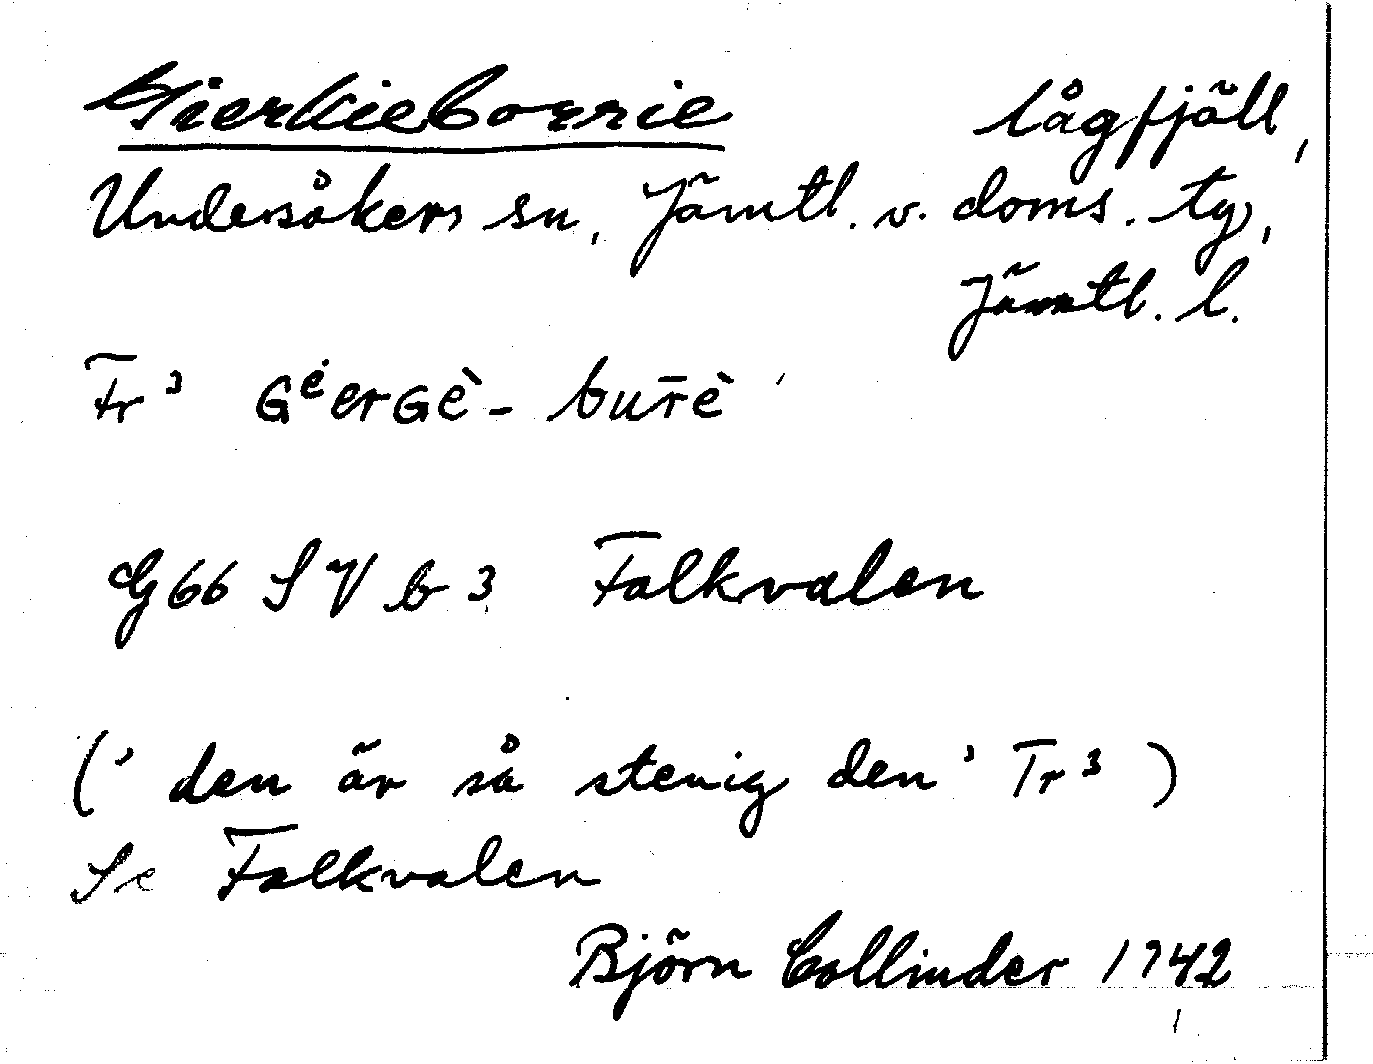 Gierkieborrie lågfjäll,
Undersåkers sn, Jämtl. v. doms. tg,
Jämtl. l.
Tr³ Gėergè-bur̄è
G66 S V b 3 Falkvalen
(' den är så stenig den' Tr³)
Se Falkvalen
Björn Collinder 1942